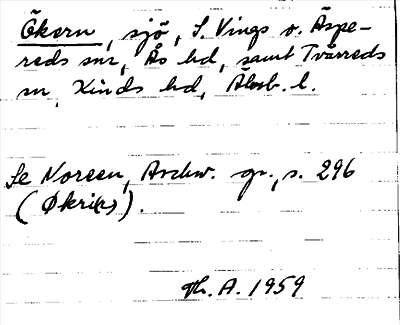 Ökern, sjö, S. Vings o. Äspe-
reds snr, Ås hd, samt Tvärreds
sn, Kinds hd, Älvsb. l.
Se Noreen, Ark. gr., s. 296
(Økri(r)).
Th. A. 1959